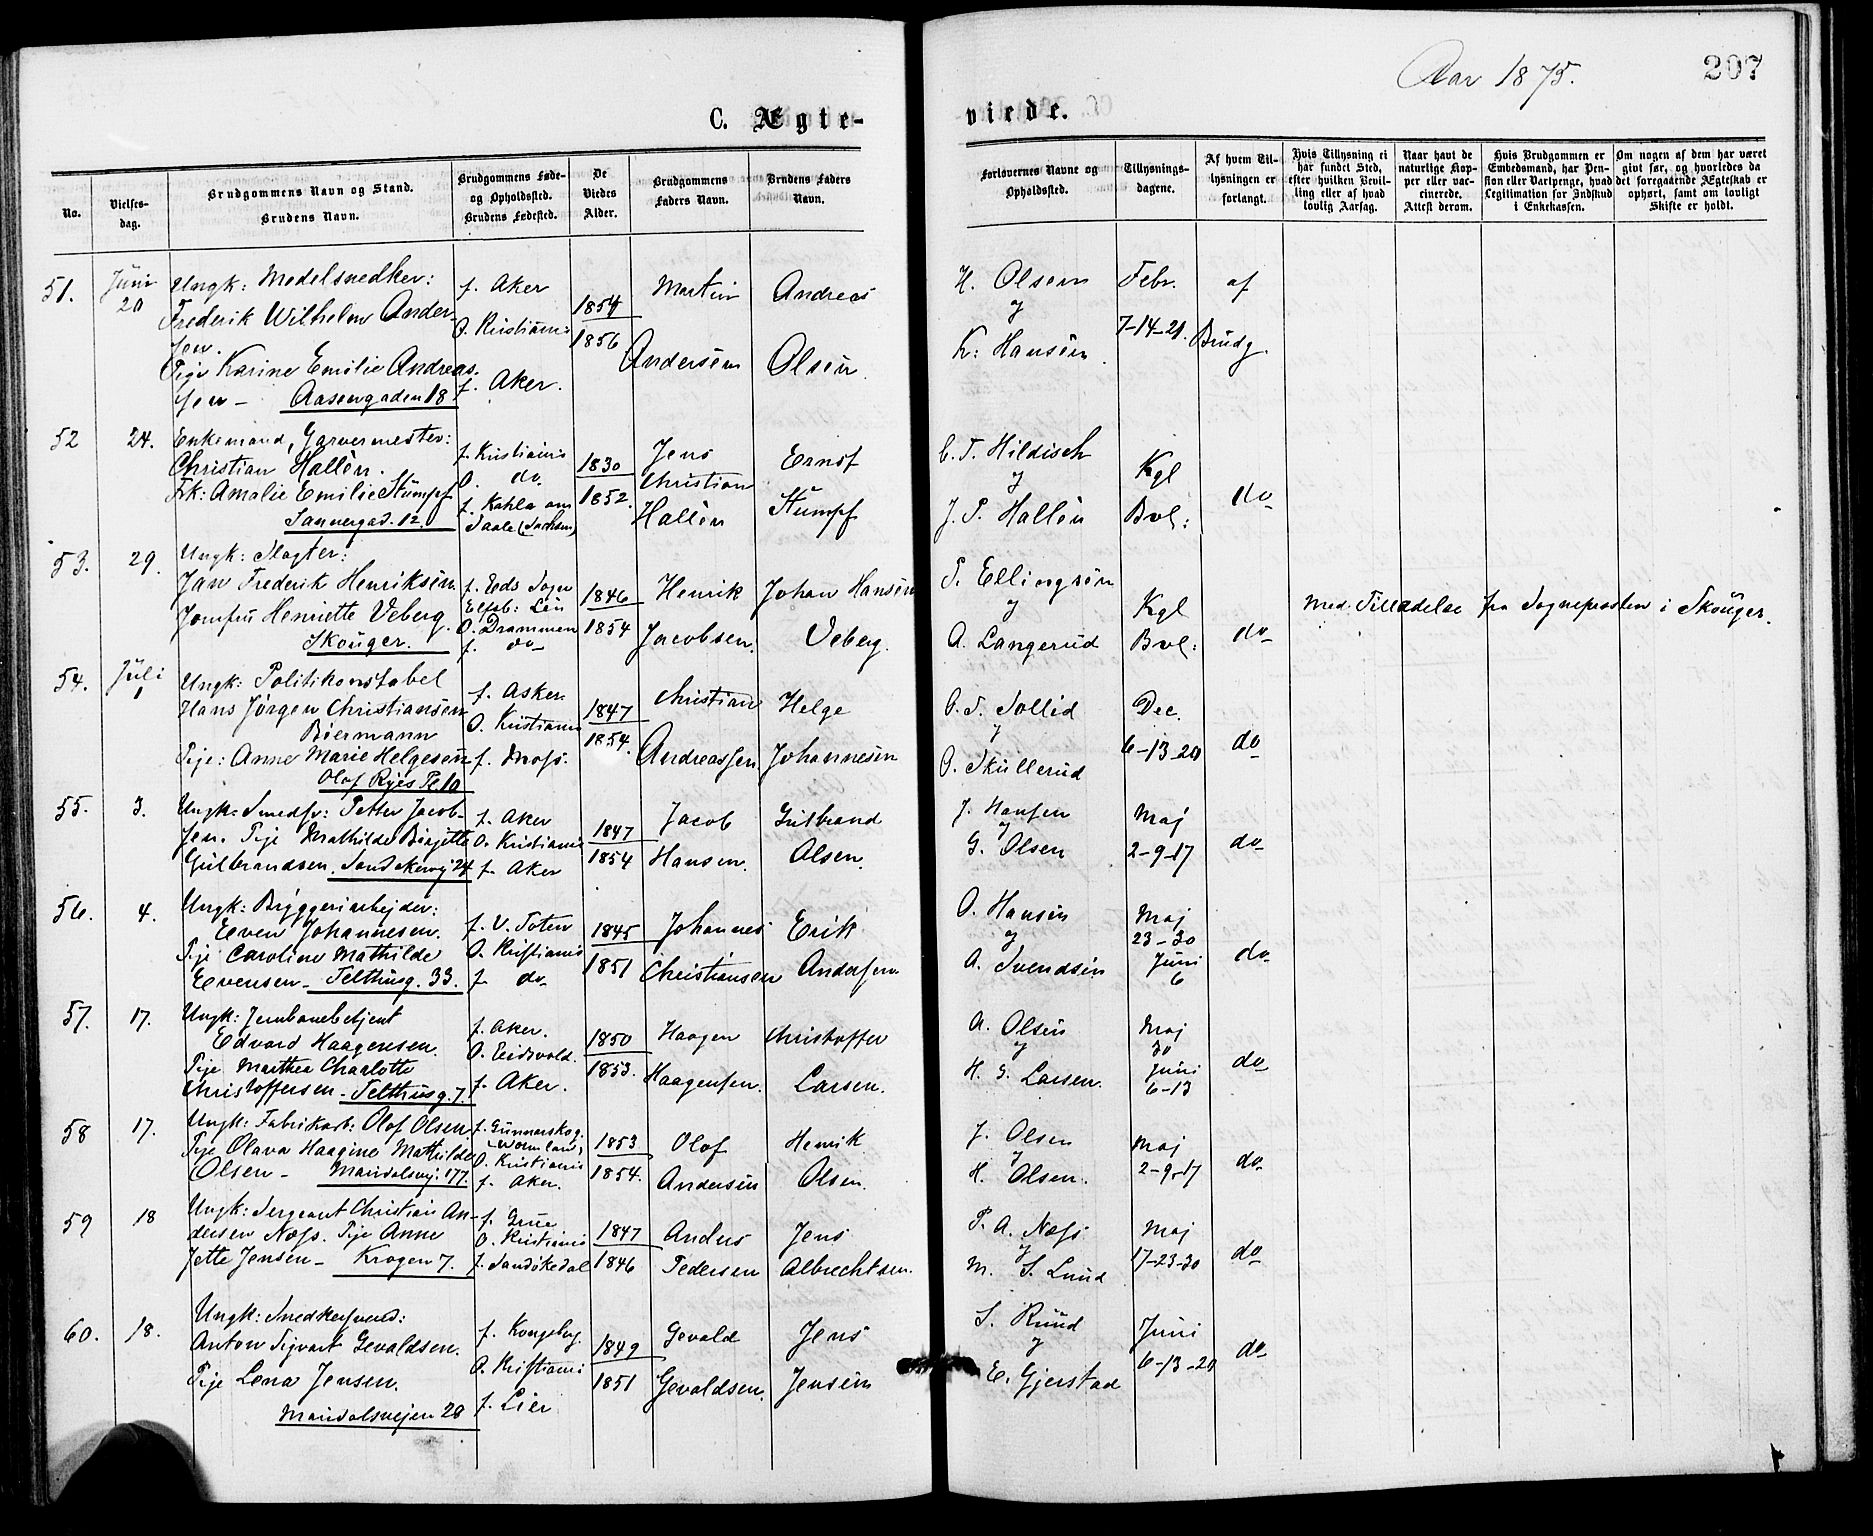 Aar 1875.
207
C. Ægte-
viede.
No.
Vielses-
dag.
Brudgommens Navn og Stand.
Brudens Navn.
Brudgommens Føde-
og Opholdssted.
Brudens Fødested.
De
Viedes
Alder.
Brudgommens
Faders Navn.
Brudens Faders
Navn.
Forlovernes Navne og
Opholdssted.
Tillysnings-
dagene.
Af hvem Til-
lysningen er
forlangt.
Hvis Tillysning ei
har fundet Sted,
efter hvilken Bevil-
ling eller af hvad
lovlig Aarsag.
Naar havt de
naturlige Kop-
per eller vac-
cinerede.
Attest derom.
Hvis Brudgommen er
Embedsmand, har Pen-
sion eller Vartpenge, hvad
Legitimation for Indskud
i Enkekassen.
Om nogen af dem har været
givt før, og hvorledes da
det foregaaende Ægteskab er
ophørt, samt om lovligt
Skifte er holdt.
51.
Juni
20
Ungk: Modelsnedker:
Frederik Wilhelm Ander-
sen.
Pige Karine Emilie Andreas-
sen - Aasengaden 18
f. Aker
O. Kristiania
f. Aker.
1854
1856
Martin
Andersen
Andreas
Olsen
H. Olsen
og
K: Hansen
Febr.
7-14-21.
af
Brudg.
52
24.
Enkemand, Garvermester:
Christian Hallèn.
Frk: Amalie Emilie Stumpf
Sannergad. 12.
f. Kristiania
O. do
f. Kahla am
Saale (Sachsen)
1830
1852.
Jens
Christian
Hallèn
Ernst
Stumpf
C. T. Hildisch
og
J. P. Hallèn
Kgl
Bvl:
do
53.
29.
Ungk: Slagter:
Jan Frederik Henriksen.
Jomfru Henriette Veberg.
Skouger.
f. Eds Sogn
Elfsb: Len
O. Drammen
f. do
1846
1854
Henrik
Jacobsen.
Johan Hansen
Veberg.
P. Ellingsen
og
A. Langerud
Kgl
Bvl:
do
Med: Tilladelse fra Sognepresten i Skouger.
54.
Juli
1
Ungk: Politikonstabel
Hans Jørgen Christiansen
Biermann
Pige: Anne Marie Helgesen
Olof Ryes Pl 10
f. Asker
O. Kristiania
f. Moss.
1847
1854.
Christian
Andreassen
Helge
Johannesen
O. S. Sollid
og
O. Skullerud
Dec.
6-13-20
do
55.
3.
Ungk: Smedsv: Petter Jacob-
sen. Pige Mathilde Birgitte
Gulbrandsen. Sandakervg 24
f. Aker
O. Kristiania
f. Aker
1847
1854
Jacob
Hansen.
Gulbrand
Olsen.
J. Hansen
og
G. Olsen
Maj
2-9-17
do
56.
4.
Ungk: Bryggeriarbejder:
Even Johannesen.
Pige Caroline Mathilde
Evensen - Telthusg. 33.
f. V. Toten
O. Kristiania
f. do
1845
1851
Johannes
Christiansen
Erik
Andersen
O. Hansen
og
A. Svendsen
Maj
23-30
Juni
6
do
57.
17.
Ungk: Jernbanebetjent
Edvard Haagensen.
Pige Marthea Charlotte
Christoffersen - Telthusg. 7.
f. Aker.
O. Eidsvold.
f. Aker.
1850
1853.
Haagen
Haagensen.
Christoffer
Larsen.
A. Olsen
og
H. G. Larsen.
Maj
30
Juni
6-13
do
58
17.
Ungk: Fabrikarb: Olof Olsen.
Pige Olava Haagine Mathilde
Olsen - Maridalsvej: 177.
f. Gunnarskog.
Wermland,
O. Kristiania
f. Aker.
1853
1854.
Olof
Andersen
Henrik
Olsen.
J. Olsen
og
H. Olsen.
Maj
2-9-17
do
59
18
Ungk: Sergeant Christian An-
dersen Næss. Pige Anne
Jette Jensen - Krogen 7.
f. Grue
O. Kristiania
f. Sandøkedal
1847
1846
Anders
Pedersen
Jens
Albrechtsen.
P. A. Næss
og
M. S. Lund
Maj
17-23-30
do
60.
18.
Ungk: Snedkersvend:
Anton Sigvart Gevaldsen.
Pige Lena Jensen.
Maridalsvejen 20
f. Kongsbg.
O. Kristiania
f. Lier
1849
1851
Gevald
Gevaldsen.
Jens
Jensen
S. Ruud
og
E. Gjerstad
Juni
6-13-20
do